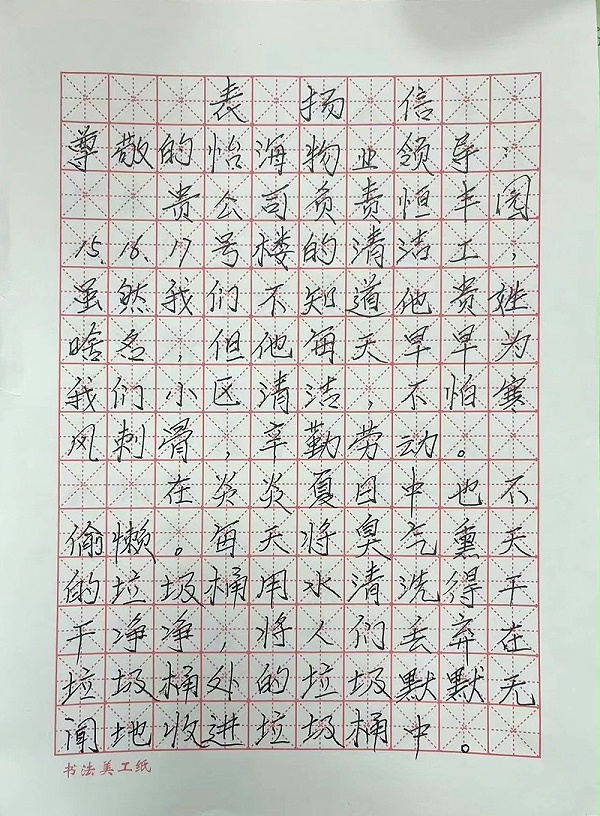 表扬信
尊敬的怡海物业领导：
贵公司负责恒丰园
15.16.17号楼的清洁工，
虽然我们不知道他贵姓
啥名，但他每天早早为
我们小区清洁，不怕寒
风刺骨，辛勤劳动。
在炎炎夏日中也不
偷懒。每天将臭气熏天
的垃圾桶用水清洗得干
干净净，将人们丢弃在
垃圾桶处的垃圾默默无
闻地收进垃圾桶中。
书法美工纸